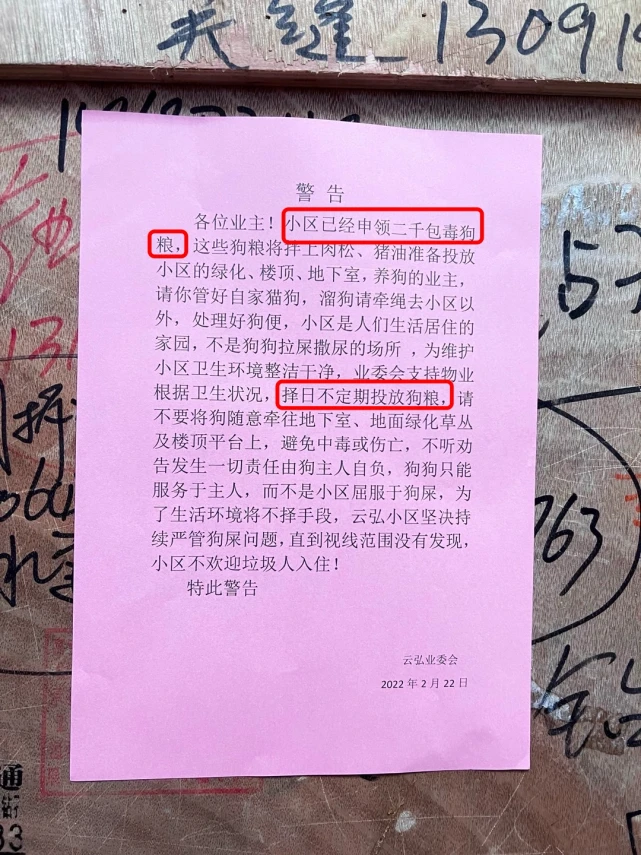 夹缝 13091
警 告
各位业主！小区已经申领二千包毒狗
粮，这些狗粮将拌上肉松、猪油准备投放
小区的绿化、楼顶、地下室，养狗的业主，
请你管好自家猫狗，溜狗请牵绳去小区以
外，处理好狗便，小区是人们生活居住的
家园，不是狗狗拉屎撒尿的场所 ，为维护
小区卫生环境整洁干净，业委会支持物业
根据卫生状况，择日不定期投放狗粮，请
不要将狗随意牵往地下室、地面绿化草丛
及楼顶平台上，避免中毒或伤亡，不听劝
告发生一切责任由狗主人自负，狗狗只能
服务于主人，而不是小区屈服于狗屎，为
了生活环境将不择手段，云弘小区坚决持
续严管狗屎问题，直到视线范围没有发现，
小区不欢迎垃圾人入住！
特此警告
云弘业委会
2022 年 2 月 22 日
763
通
33